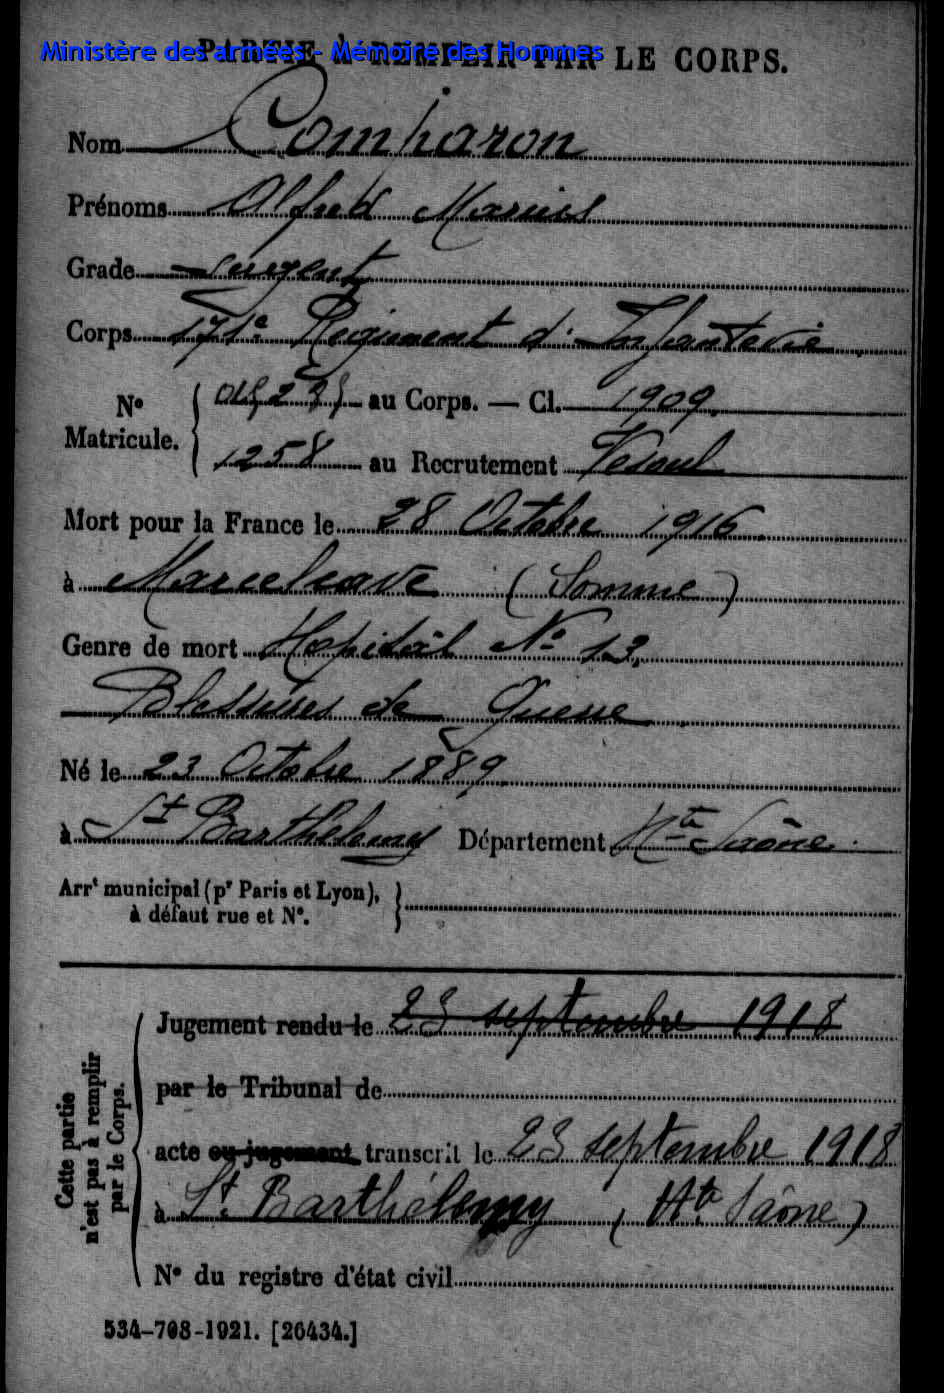 Ministère des armées - Mémoire des Hommes
PARTIE À REMPLIR PAR LE CORPS.
Nom Comparon
Prénoms Alfred Marius
Grade Sergent
Corps 171e Régiment d'Infanterie
No
Matricule.
au Corps. — Cl. 1909.
1258 au Recrutement Vesoul
Mort pour la France le 28 Octobre 1916.
à Marcelcave (Somme)
Genre de mort Hopital No 13.
Blessures de Guerre
Né le 23 Octobre 1889
à St Barthelemy Département Hte Saône.
Arrt municipal (pr Paris et Lyon),
à défaut rue et No.
Cette partie
n'est pas à remplir
par le Corps.
Jugement rendu le 23 septembre 1918
par le Tribunal de
acte ou jugement transcrit le 23 septembre 1918
à St. Barthélemy (Hte Saône)
No du registre d'état civil
534-708-1921. [26434.]